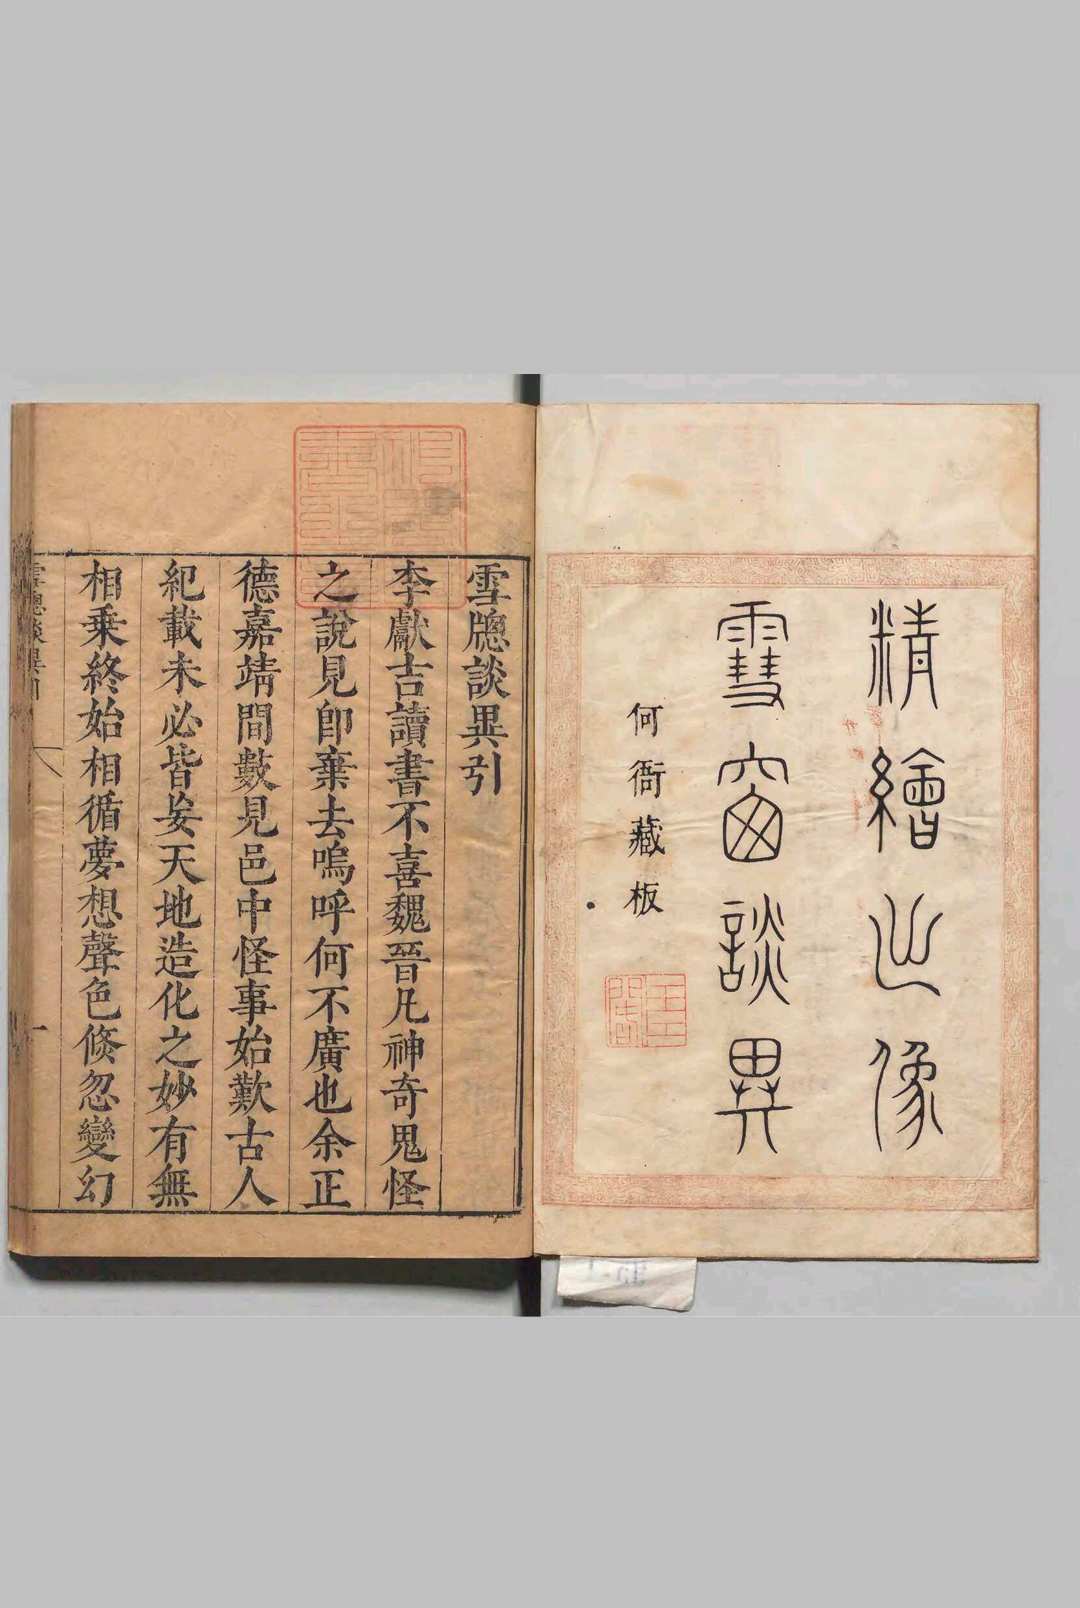 精繪出像
雪窗談異
何衙藏板
雪牕談異引
李獻吉讀書不喜魏晉凡神奇鬼怪
之說見卽棄去嗚呼何不廣也余正
德嘉靖間數見邑中怪事始歎古人
紀載未必皆妄天地造化之妙有無
相乗終始相循夢想聲色倐忽變幻
雪牕談異引
一